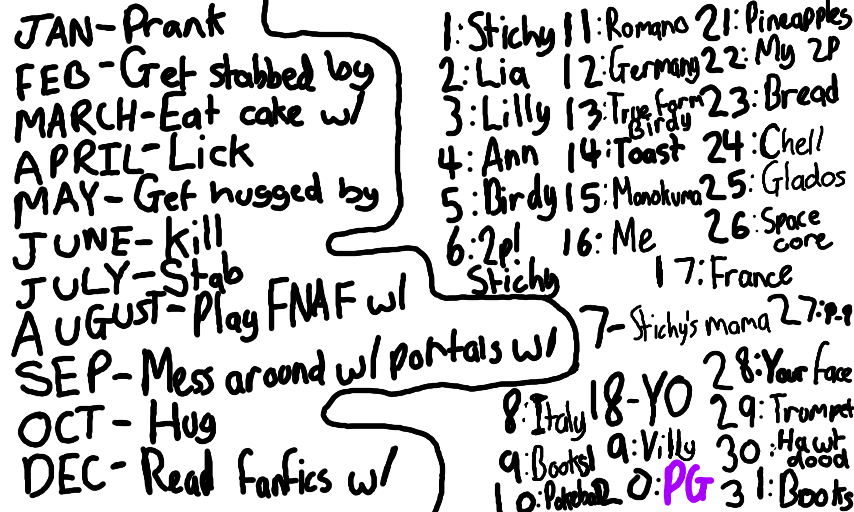 JAN-Prank
FEB-Get stabbed by
MARCH-Eat cake w/
APRIL-Lick
MAY-Get hugged by
JUNE-kill
JULY-Stab
AUGUST-Play FNAF w/
SEP-Mess around w/ portals w/
OCT-Hug
DEC-Read fanfics w/
1:Stichy
2:Lia
3:Lilly
4:Ann
5:Birdy
6:2p!
Stichy
7-Stichy's mama
8:Italy
9:Books!
10:Pokeball
11:Romano
12:Germany
13:True form
Birdy
14:Toast
15:Monokuma
16:Me
17:France
18-YO
9:Villy
0:PG
21:Pineapples
22:My 2P
23:Bread
24:Chell
25:Glados
26:Space
core
27:P-P
28:Your face
29:Trumpet
30:Hawt
dood
31:Books